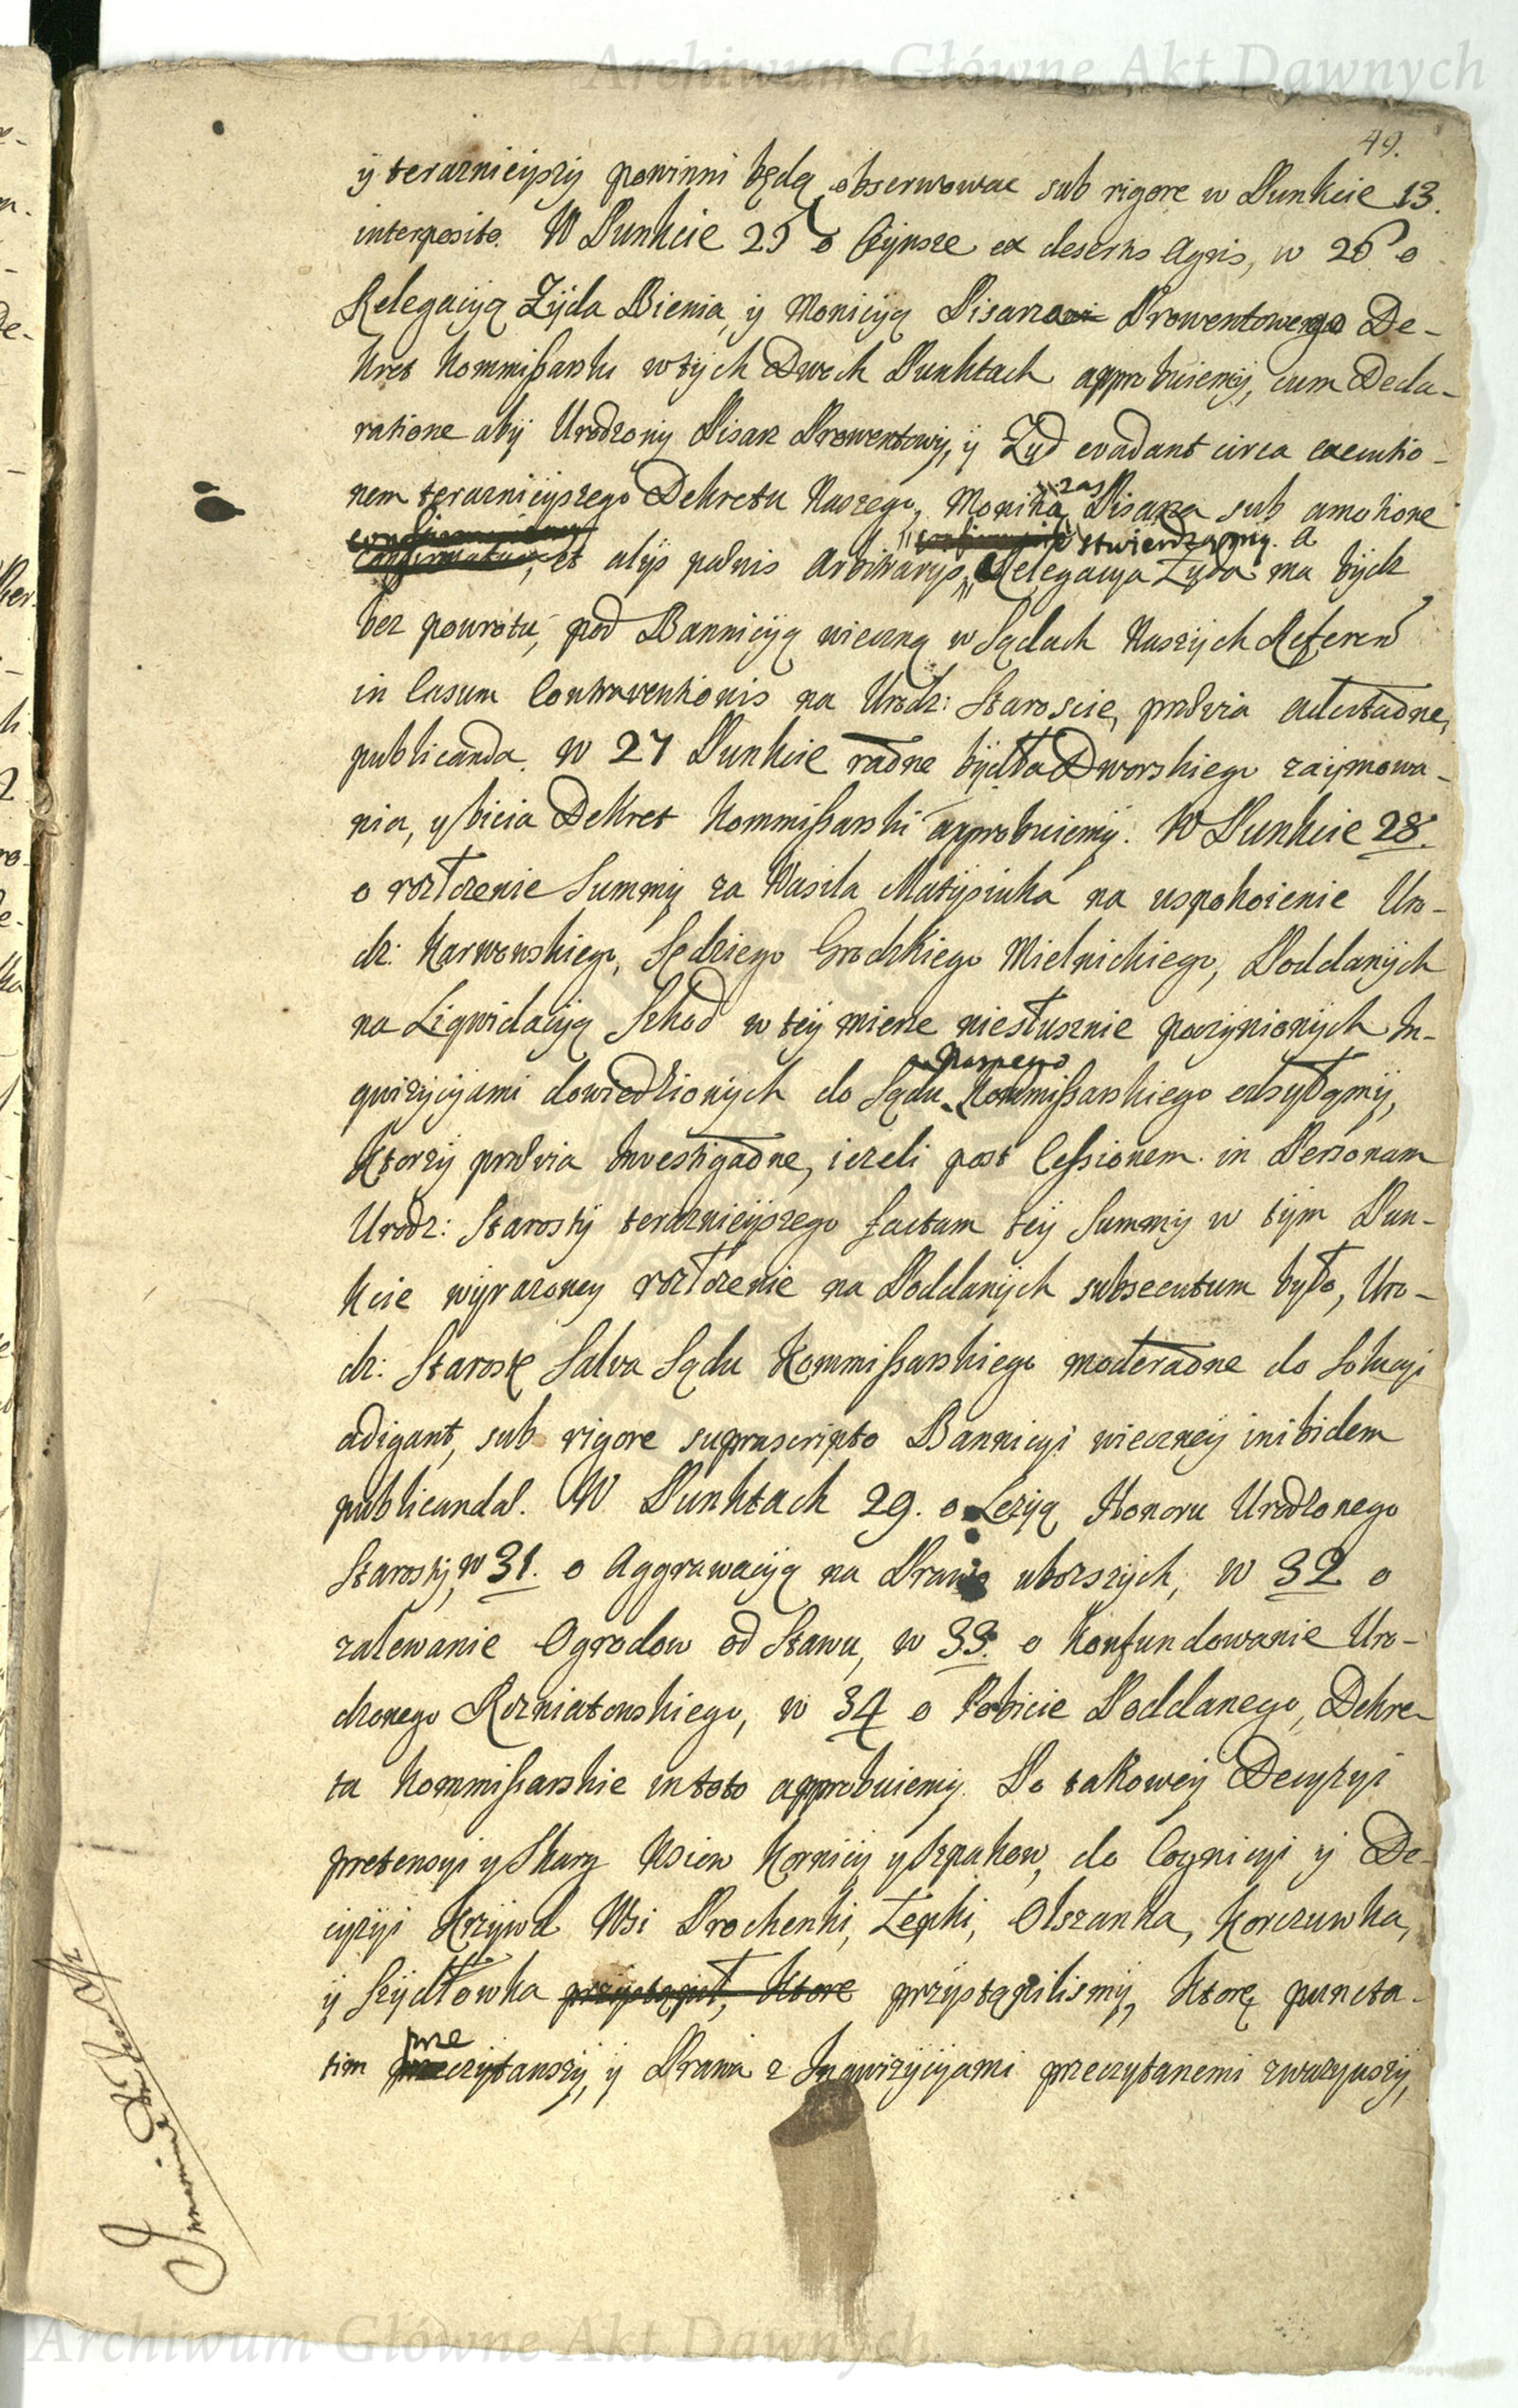 Archiwum Główne Akt Dawnych
49.
ÿ teraznieÿszÿ powinni będą obserwowac sub rigore w Punkcie 13.
interposito. W Punkcie 25 o Czÿnsze ex desertis Agris, w 26 o
Relegacÿą Zÿda Bienia, ÿ Monicÿą Pisarza Prowentowego De-
kret Kommissarski w tÿch Dwoch Punktach approbuiemÿ, cum Decla-
ratione abÿ Urodzonÿ Pisarz Prowentowÿ, ÿ Zyd evadant circa executio-
nem teraznieÿszego Dekretu Naszego, Monita zas Pisarza sub amotione
et alÿs pœnis arbitrarÿs, stwierdzamÿ. a
Relegacya Zyda ma bÿdz
bez powrotu, pod Bannicÿą wieczną w Sądach Naszÿch Referen
in Casum Contraventionis na Urodz: Staroscie, prævia
publicanda. W 27 Punkcie bÿdła Dworskiego zaÿmowa-
nia, y bicia Dekret Kommissarski approbuiemÿ. W Punkcie 28.
o rozłozenie Summÿ za Wasila Matÿsiuka na uspokoienie Uro-
dz: Karwowskiego, Sędziego Grodzkiego Mielnickiego, Poddanÿch
na Liqwidacÿą Szkod w teÿ mierze niesłusznie poczÿnionÿch In-
qwizÿcÿami dowiedzionÿch do Sądu Naszego Kommissarskiego odsyłamÿ,
Ktorzÿ prævia ieżeli post Cessionem in Personam
Urodz: Starostÿ teraznieÿszego factam teÿ Summÿ w tÿm Pun-
kcie wÿrazoney rozłozenie na Poddanÿch subsecutum było, Uro-
dz: Starostę Salva Sądu Kommissarskiego do Solucÿi
adigant, sub rigore suprascripto Bannicyi wieczneÿ inibidem
publicandæ. W Punktach 29. o Lezÿą Honoru Urodzonego
Starostÿ, w 31. o Aggrawacÿą na Prawo uboższÿch, w 32 o
zalewanie Ogrodow od Stawu, w 33. o Konfundowanie Uro-
dzonego Rozniatowskiego, w 34 o Pobicie Poddanego, Dekre-
ta Kommissarskie in toto approbuiemÿ. Po takoweÿ Decyzyi
pretensyi y Skarg Wsiow Kornicÿ y Szpakow, do Cognicyi ÿ De-
cyzÿi Krzÿwd Wsi Prochenki, Łepki, Olszanka, Korczuwka,
ÿ Szÿdłowka przÿstąpił, Ktore przÿstąpilismÿ, Ktorę puncta-
tim przeczÿtawszÿ, ÿ Prawa z Inqwizÿcÿami przeczytanemi zwazywszÿ,
Archiwum Główne Akt Dawnych